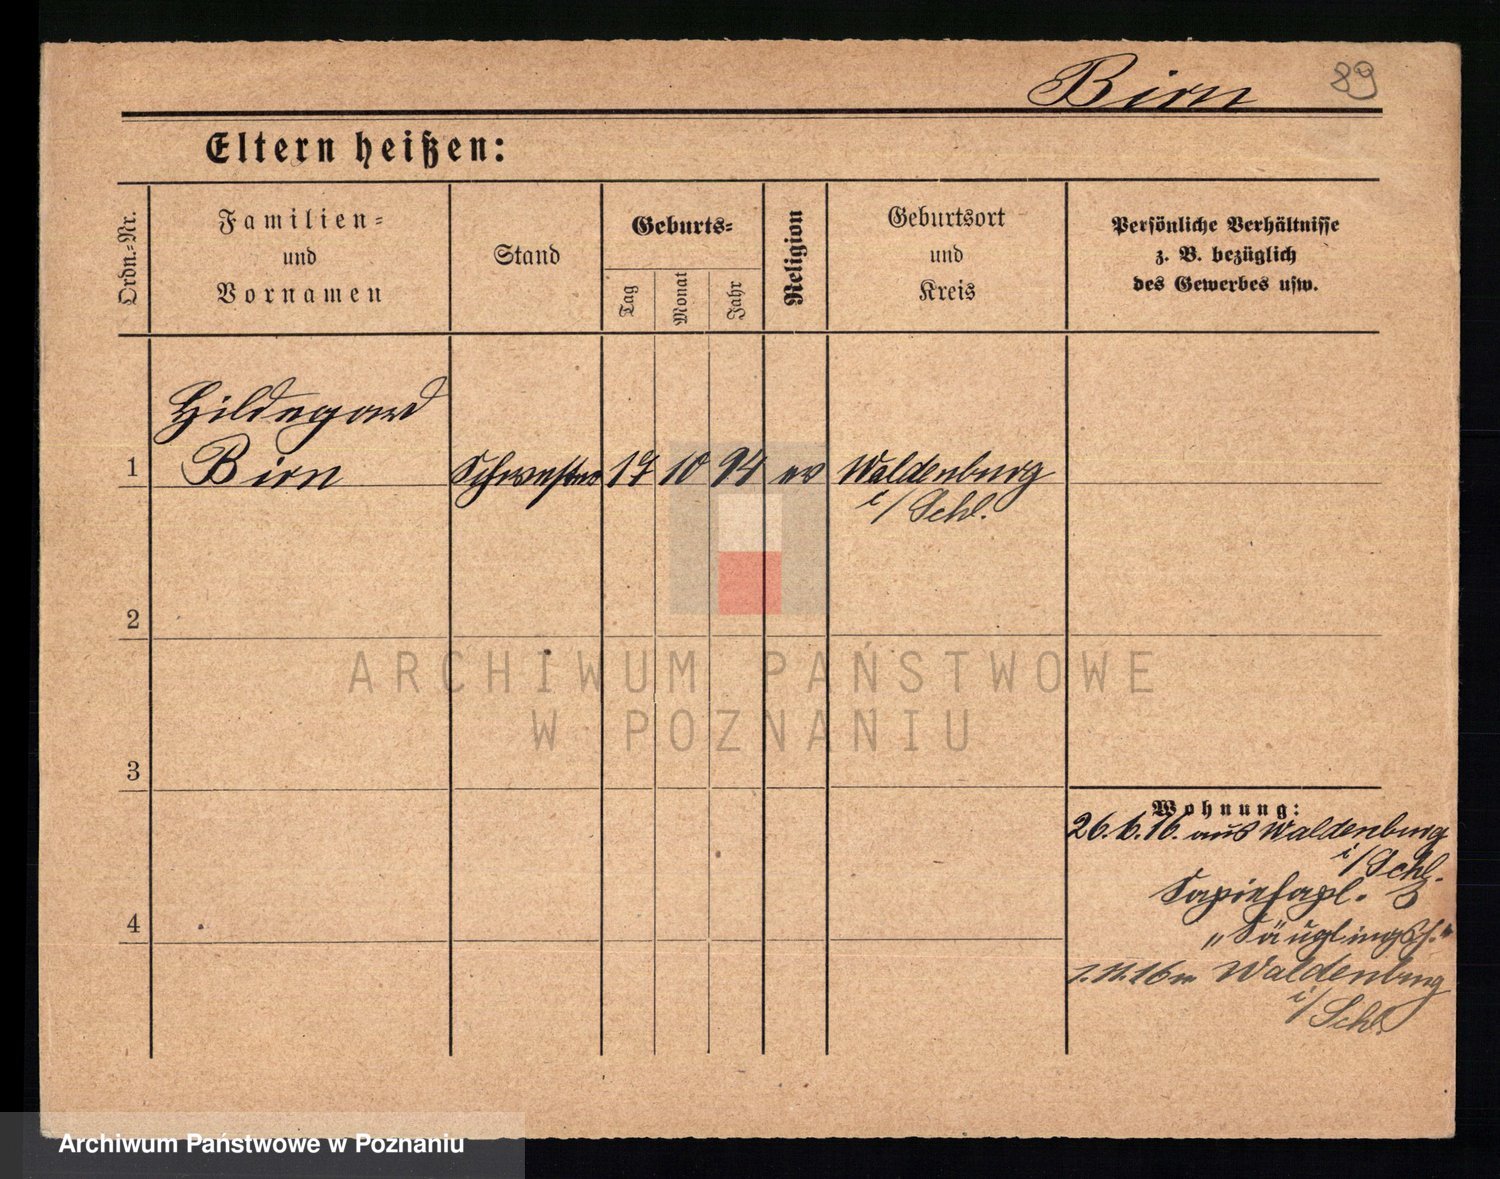 Birn 89
Eltern heißen:
Ordn.=Nr.
Familien=
und
Vornamen
Stand
Geburts=
Tag
Monat
Jahr
Religion
Geburtsort
und
Kreis
Persönliche Verhältnisse
z. B. bezüglich
des Gewerbes usw.
Hildegard
1 Birn Schwester 10 94 ev Waldenburg
i/Schl.
2
ARCHIWUM PAŃSTWOWE
W POZNANIU
3
Wohnung:
26.6.16. aus Waldenburg
i/Schl.
Sapiehapl.
4
"Säuglingsh."
1.11.16 n Waldenburg
i/Schl.
Archiwum Państwowe w Poznaniu